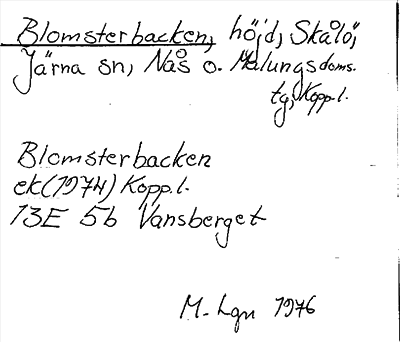 Blomsterbacken, höjd, Skålö,
Järna sn, Nås o. Malungs doms.
tg, Kopp.l.
Blomsterbacken
ek (1974) Kopp.l.
13E 5b Vansberget
M. Lgn 1976